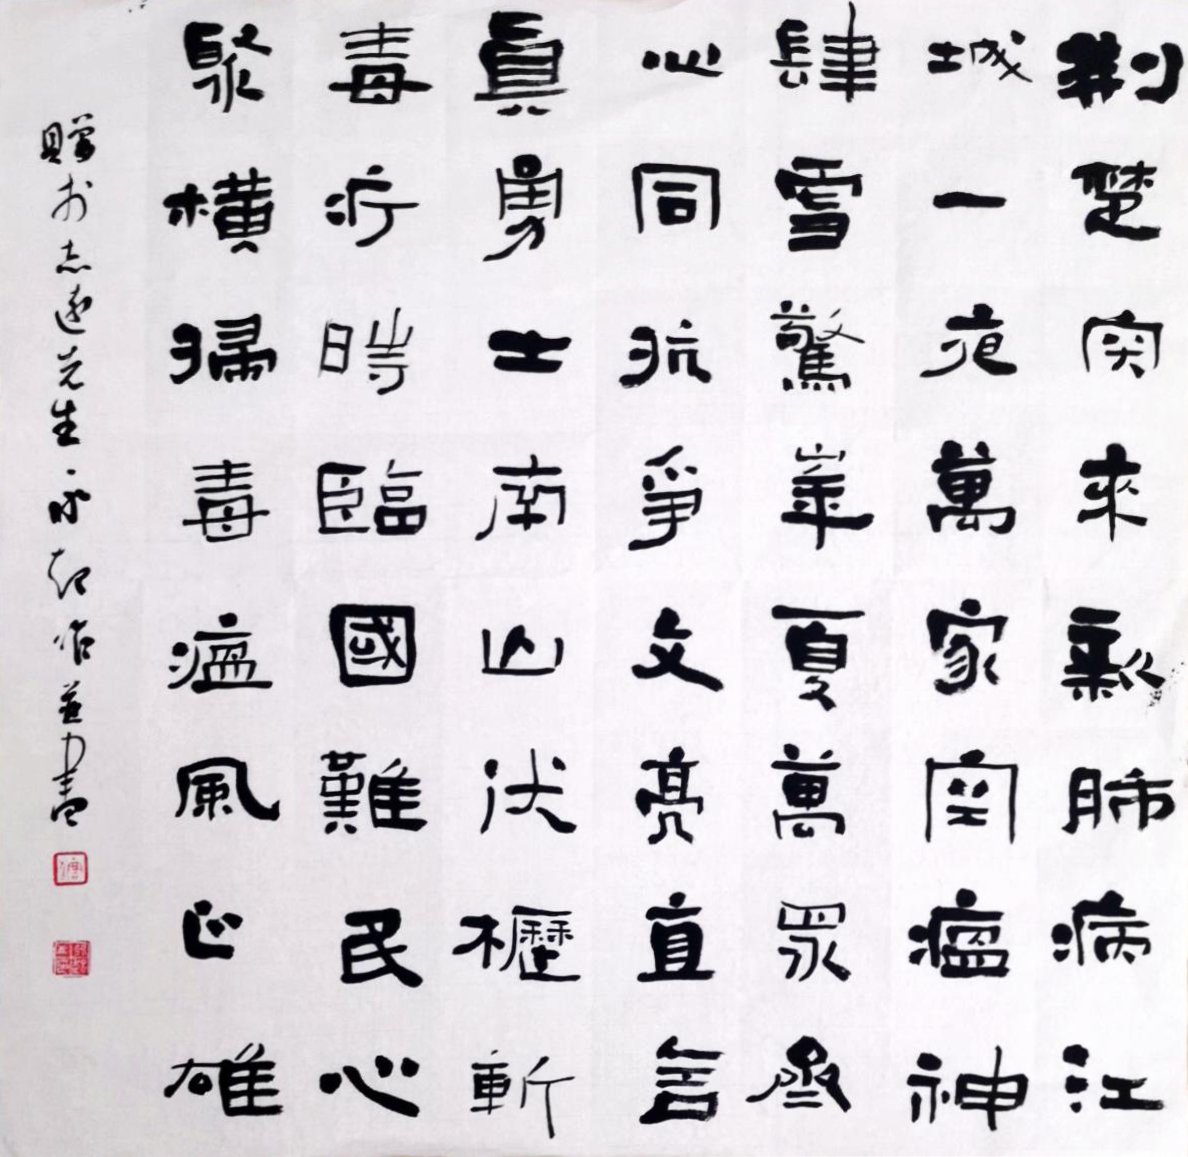 荆楚突來新肺病江
城一夜萬家空瘟神
肆虐驚華夏萬眾齊
心同抗爭文亮直言
真勇士南山伏櫪斬
毒疔時臨國難民心
聚橫掃毒瘟風正雄
贈於志遠先生永作並書